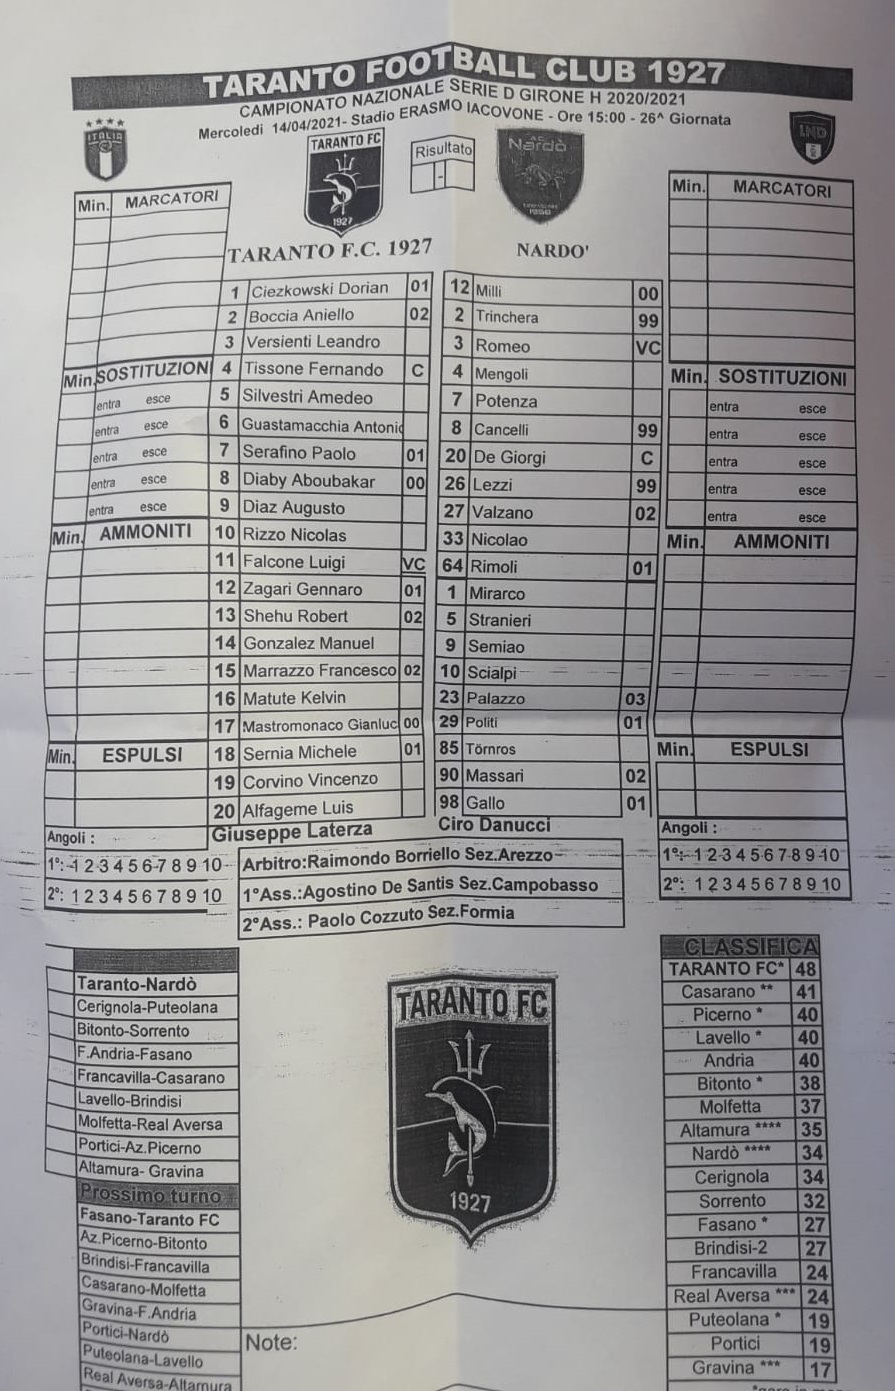 TARANTO FOOTBALL CLUB 1927
CAMPIONATO NAZIONALE SERIE D GIRONE H 2020/2021
Mercoledi 14/04/2021- Stadio ERASMO IACOVONE - Ore 15:00 - 26^ Giornata
ITALIA
TARANTO FC
1927
Risultato
-
Nardò
LND
TARANTO F.C. 1927
NARDO'
Min. MARCATORI
Min. SOSTITUZIONI
entra esce
entra esce
entra esce
entra esce
entra esce
Min. AMMONITI
Min. ESPULSI
Angoli :
1°: 1 2 3 4 5 6 7 8 9 10
2°: 1 2 3 4 5 6 7 8 9 10
1 Ciezkowski Dorian 01
2 Boccia Aniello 02
3 Versienti Leandro
4 Tissone Fernando C
5 Silvestri Amedeo
6 Guastamacchia Antonio
7 Serafino Paolo 01
8 Diaby Aboubakar 00
9 Diaz Augusto
10 Rizzo Nicolas
11 Falcone Luigi VC
12 Zagari Gennaro 01
13 Shehu Robert 02
14 Gonzalez Manuel
15 Marrazzo Francesco 02
16 Matute Kelvin
17 Mastromonaco Gianluc 00
18 Sernia Michele 01
19 Corvino Vincenzo
20 Alfageme Luis
Giuseppe Laterza
12 Milli 00
2 Trinchera 99
3 Romeo VC
4 Mengoli
7 Potenza
8 Cancelli 99
20 De Giorgi C
26 Lezzi 99
27 Valzano 02
33 Nicolao
64 Rimoli 01
1 Mirarco
5 Stranieri
9 Semiao
10 Scialpi
23 Palazzo 03
29 Politi 01
85 Törnros
90 Massari 02
98 Gallo 01
Ciro Danucci
Min. MARCATORI
Min. SOSTITUZIONI
entra esce
entra esce
entra esce
entra esce
entra esce
Min. AMMONITI
Min. ESPULSI
Angoli :
1°: 1 2 3 4 5 6 7 8 9 10
2°: 1 2 3 4 5 6 7 8 9 10
Arbitro:Raimondo Borriello Sez.Arezzo
1°Ass.:Agostino De Santis Sez.Campobasso
2°Ass.: Paolo Cozzuto Sez.Formia
Taranto-Nardò
Cerignola-Puteolana
Bitonto-Sorrento
F.Andria-Fasano
Francavilla-Casarano
Lavello-Brindisi
Molfetta-Real Aversa
Portici-Az.Picerno
Altamura- Gravina
Prossimo turno
Fasano-Taranto FC
Az.Picerno-Bitonto
Brindisi-Francavilla
Casarano-Molfetta
Gravina-F.Andria
Portici-Nardò
Puteolana-Lavello
Real Aversa-Altamura
TARANTO FC
1927
Note:
CLASSIFICA
TARANTO FC* 48
Casarano ** 41
Picerno * 40
Lavello * 40
Andria 40
Bitonto * 38
Molfetta 37
Altamura **** 35
Nardò **** 34
Cerignola 34
Sorrento 32
Fasano * 27
Brindisi-2 27
Francavilla 24
Real Aversa *** 24
Puteolana * 19
Portici 19
Gravina *** 17